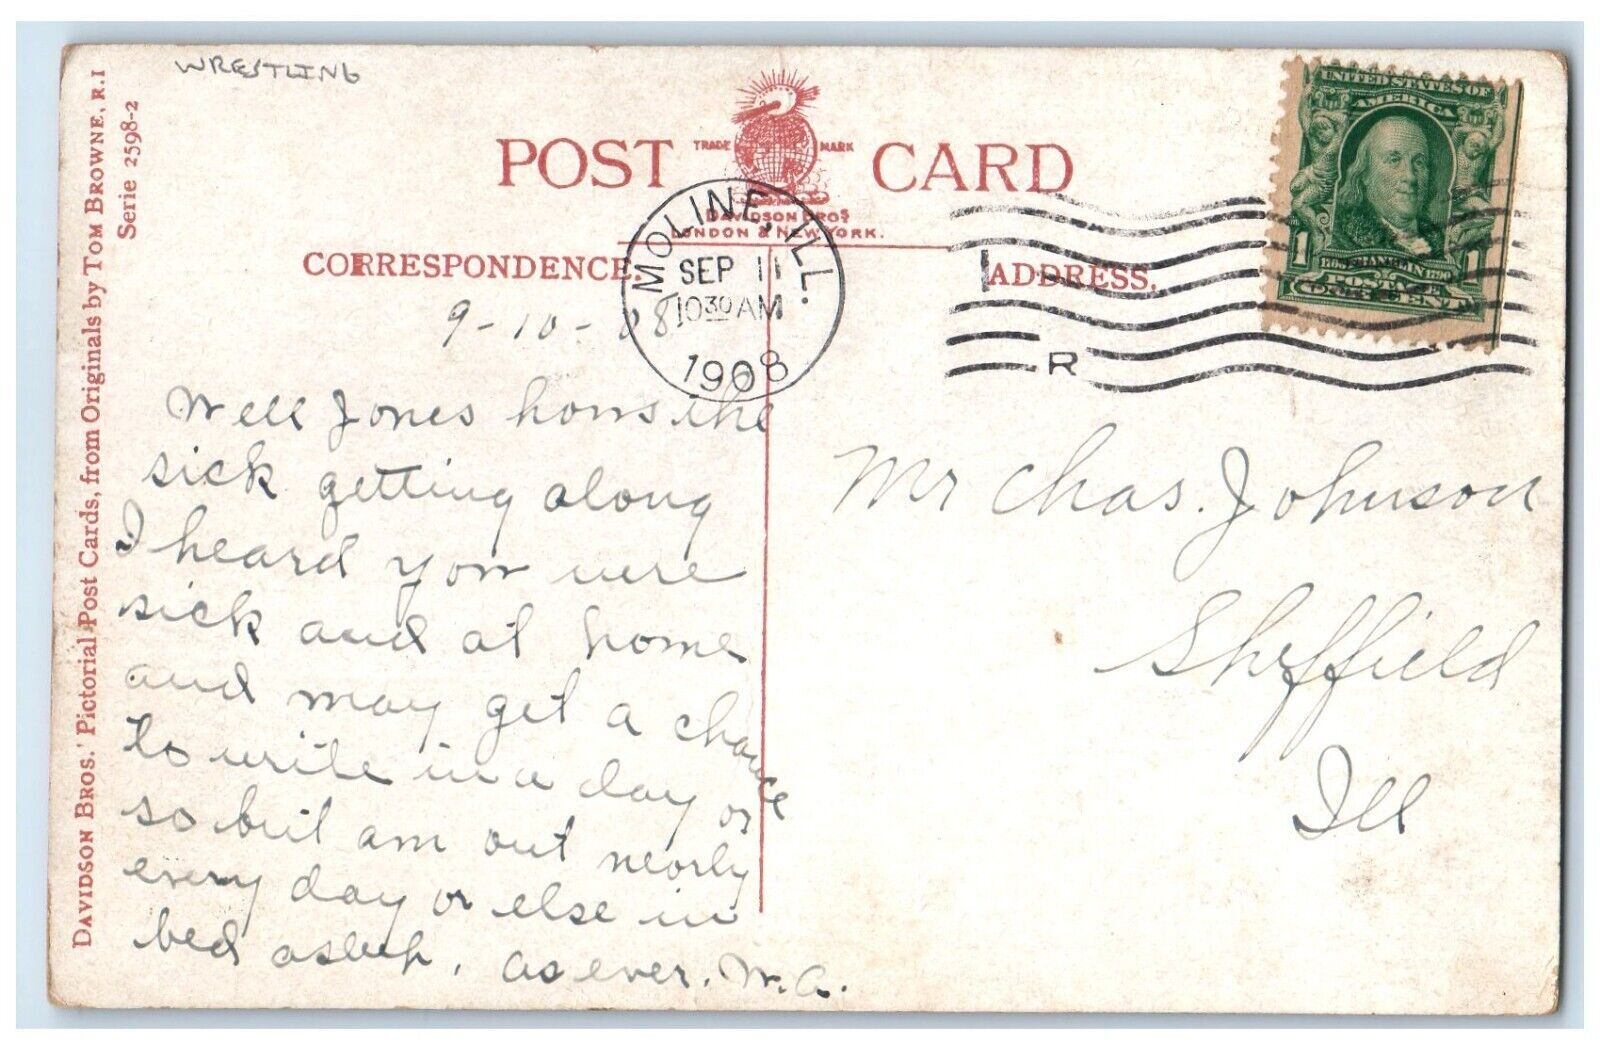 WRESTLING
DAVIDSON BROS.' Pictorial Post Cards, from Originals by TOM BROWNE, R.I
Serie 2598-2
POST CARD
TRADE MARK
DAVIDSON BROS
LONDON & NEW YORK.
CORRESPONDENCE.
ADDRESS.
MOLINE, ILL.
SEP 11
10 30 AM
1908
R
UNITED STATES OF
AMERICA
1 1
FRANKLIN
POSTAGE
ONE CENT
9-10-08
Well Jones hows the
sick getting along
I heard you were
sick and at home
and may get a chance
to write in a day or
so but am out nearly
every day or else in
bed asleep, as ever. W.A.
Mr Chas. Johnson
Sheffield
Ill